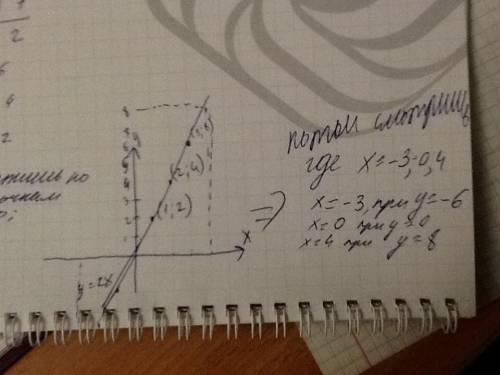 2
6
4
2
8
7
6
5
4
3
2
1
y
(3;6)
(2;4)
(1;2)
x
y=2x
по
потом смотришь
где x=-3;0,4
=>
x=-3, при y=-6
x=0 при y=0
x=4 при y=8